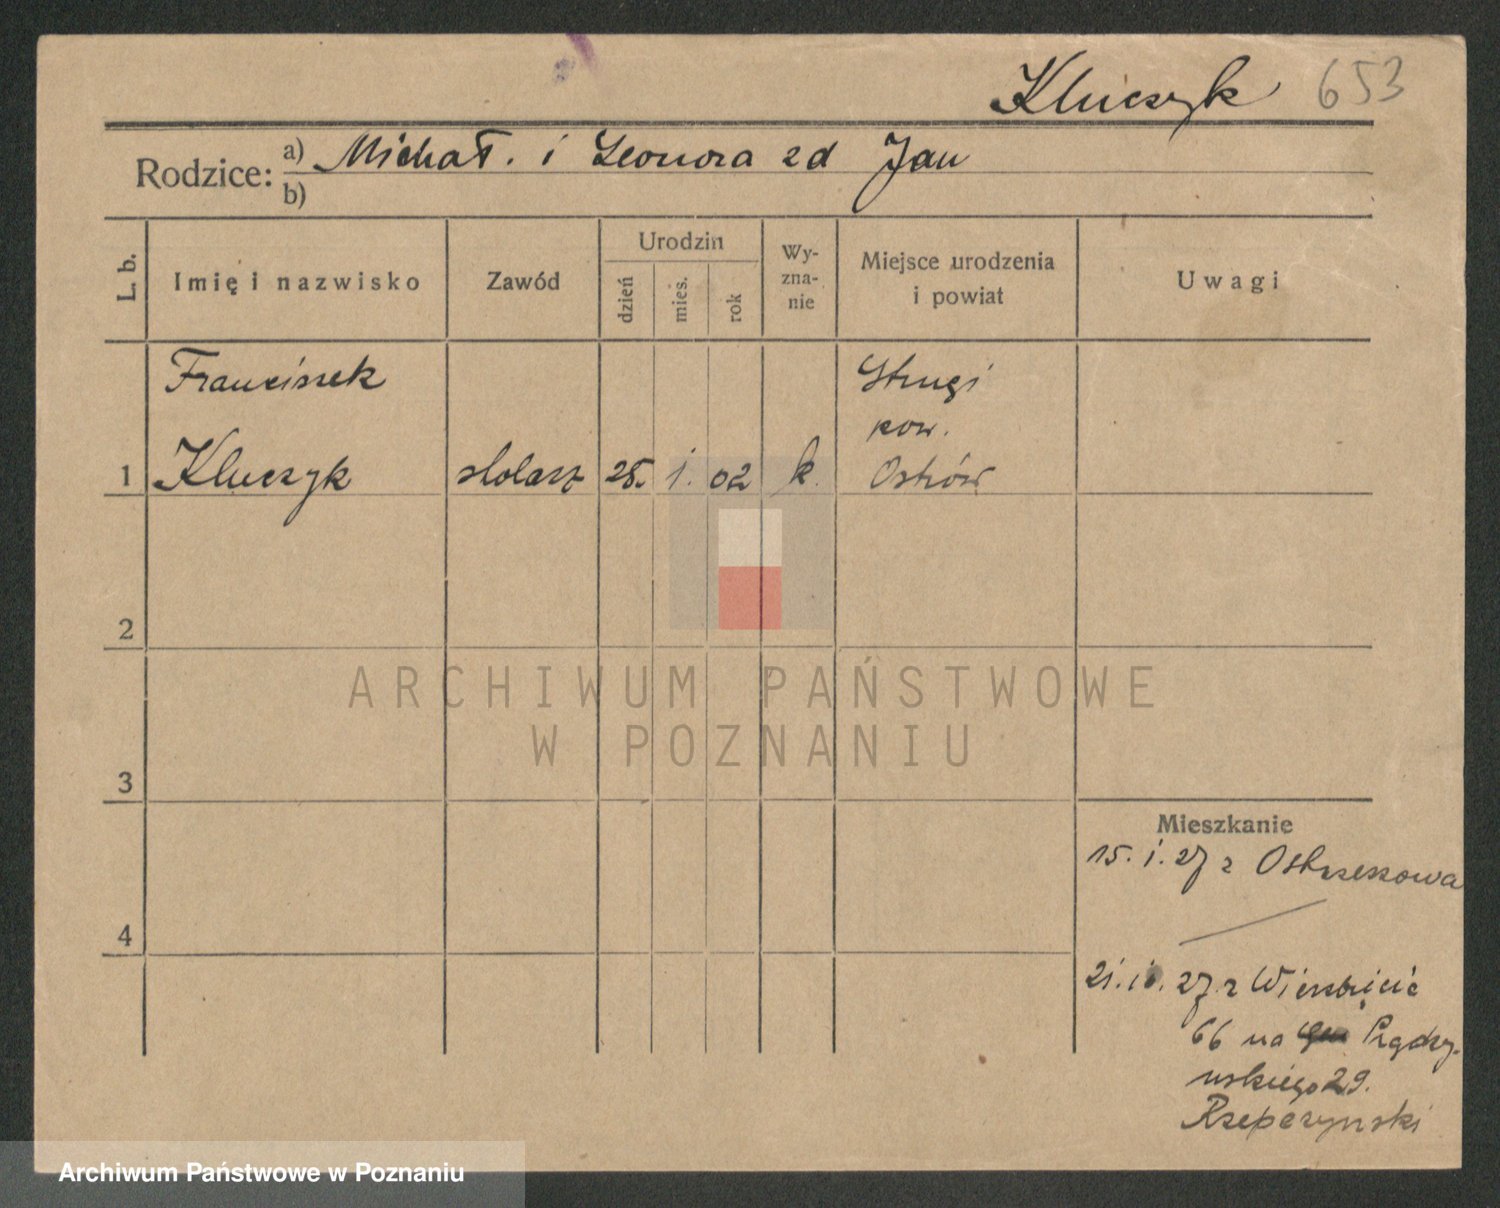 Kluczyk 653
Rodzice: a) Michał. i Leonora zd Jan
b)
L. b. Imię i nazwisko Zawód Urodzin dzień mies. rok Wyznanie Miejsce urodzenia i powiat Uwagi
Franciszek Strugi
pow.
1 Kluczyk stolarz 28. i. 02 k. Ostrów
2
ARCHIWUM PAŃSTWOWE
W POZNANIU
3
Mieszkanie
15. i. 27 z Ostrzeszowa
4
27 z Wierzbięcic
66 na Prądzy-
nskiego 29.
Rzepczynski
Archiwum Państwowe w Poznaniu